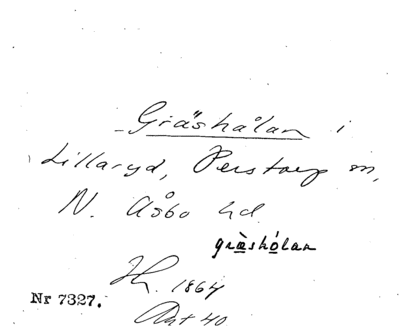 Gräshålan i
Lillaryd, Perstorp sn,
N. Åsbo hd.
gräshólan
1864
Nr 7327.
40